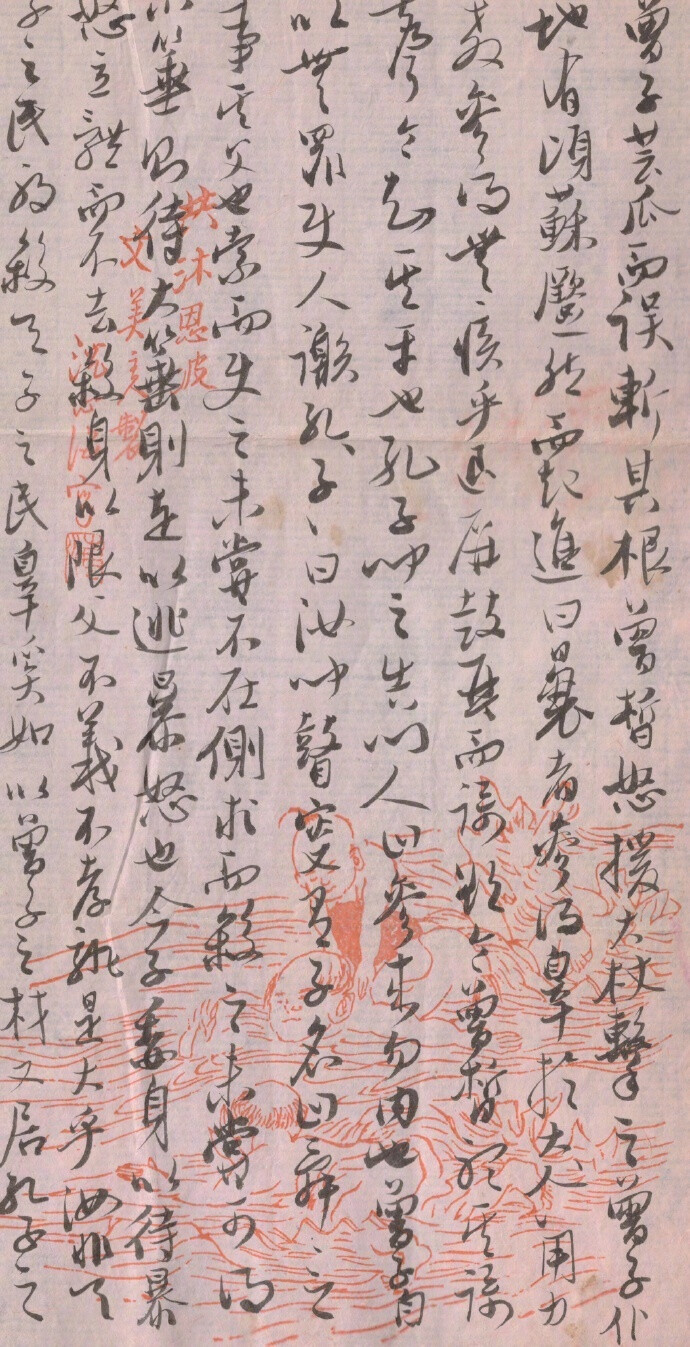 曾子芸瓜而误斬其根曾晳怒援大杖擊之曾子仆
地有頃蘇蹷然而起進曰曩者參得辠於大人〻用力
教參得無疾乎退屏鼓琴而謌欲令曾晳聽其謌
聲令知其平也孔子聞之告門人曰參来勿内也曾子自
以無罪使人謝孔〻子〻曰汝聞瞽叟有子名曰舜〻之
事其父也索而使之未嘗不在側求而殺之未嘗可得
小箠則待大箠則走以逃暴怒也今子委身以待暴
怒立體而不去殺身以陷父不義不孝孰是大乎汝非天
子之民邪殺天子之民辠奚如以曾子之材又居孔子之
共沐恩波
文美齋製